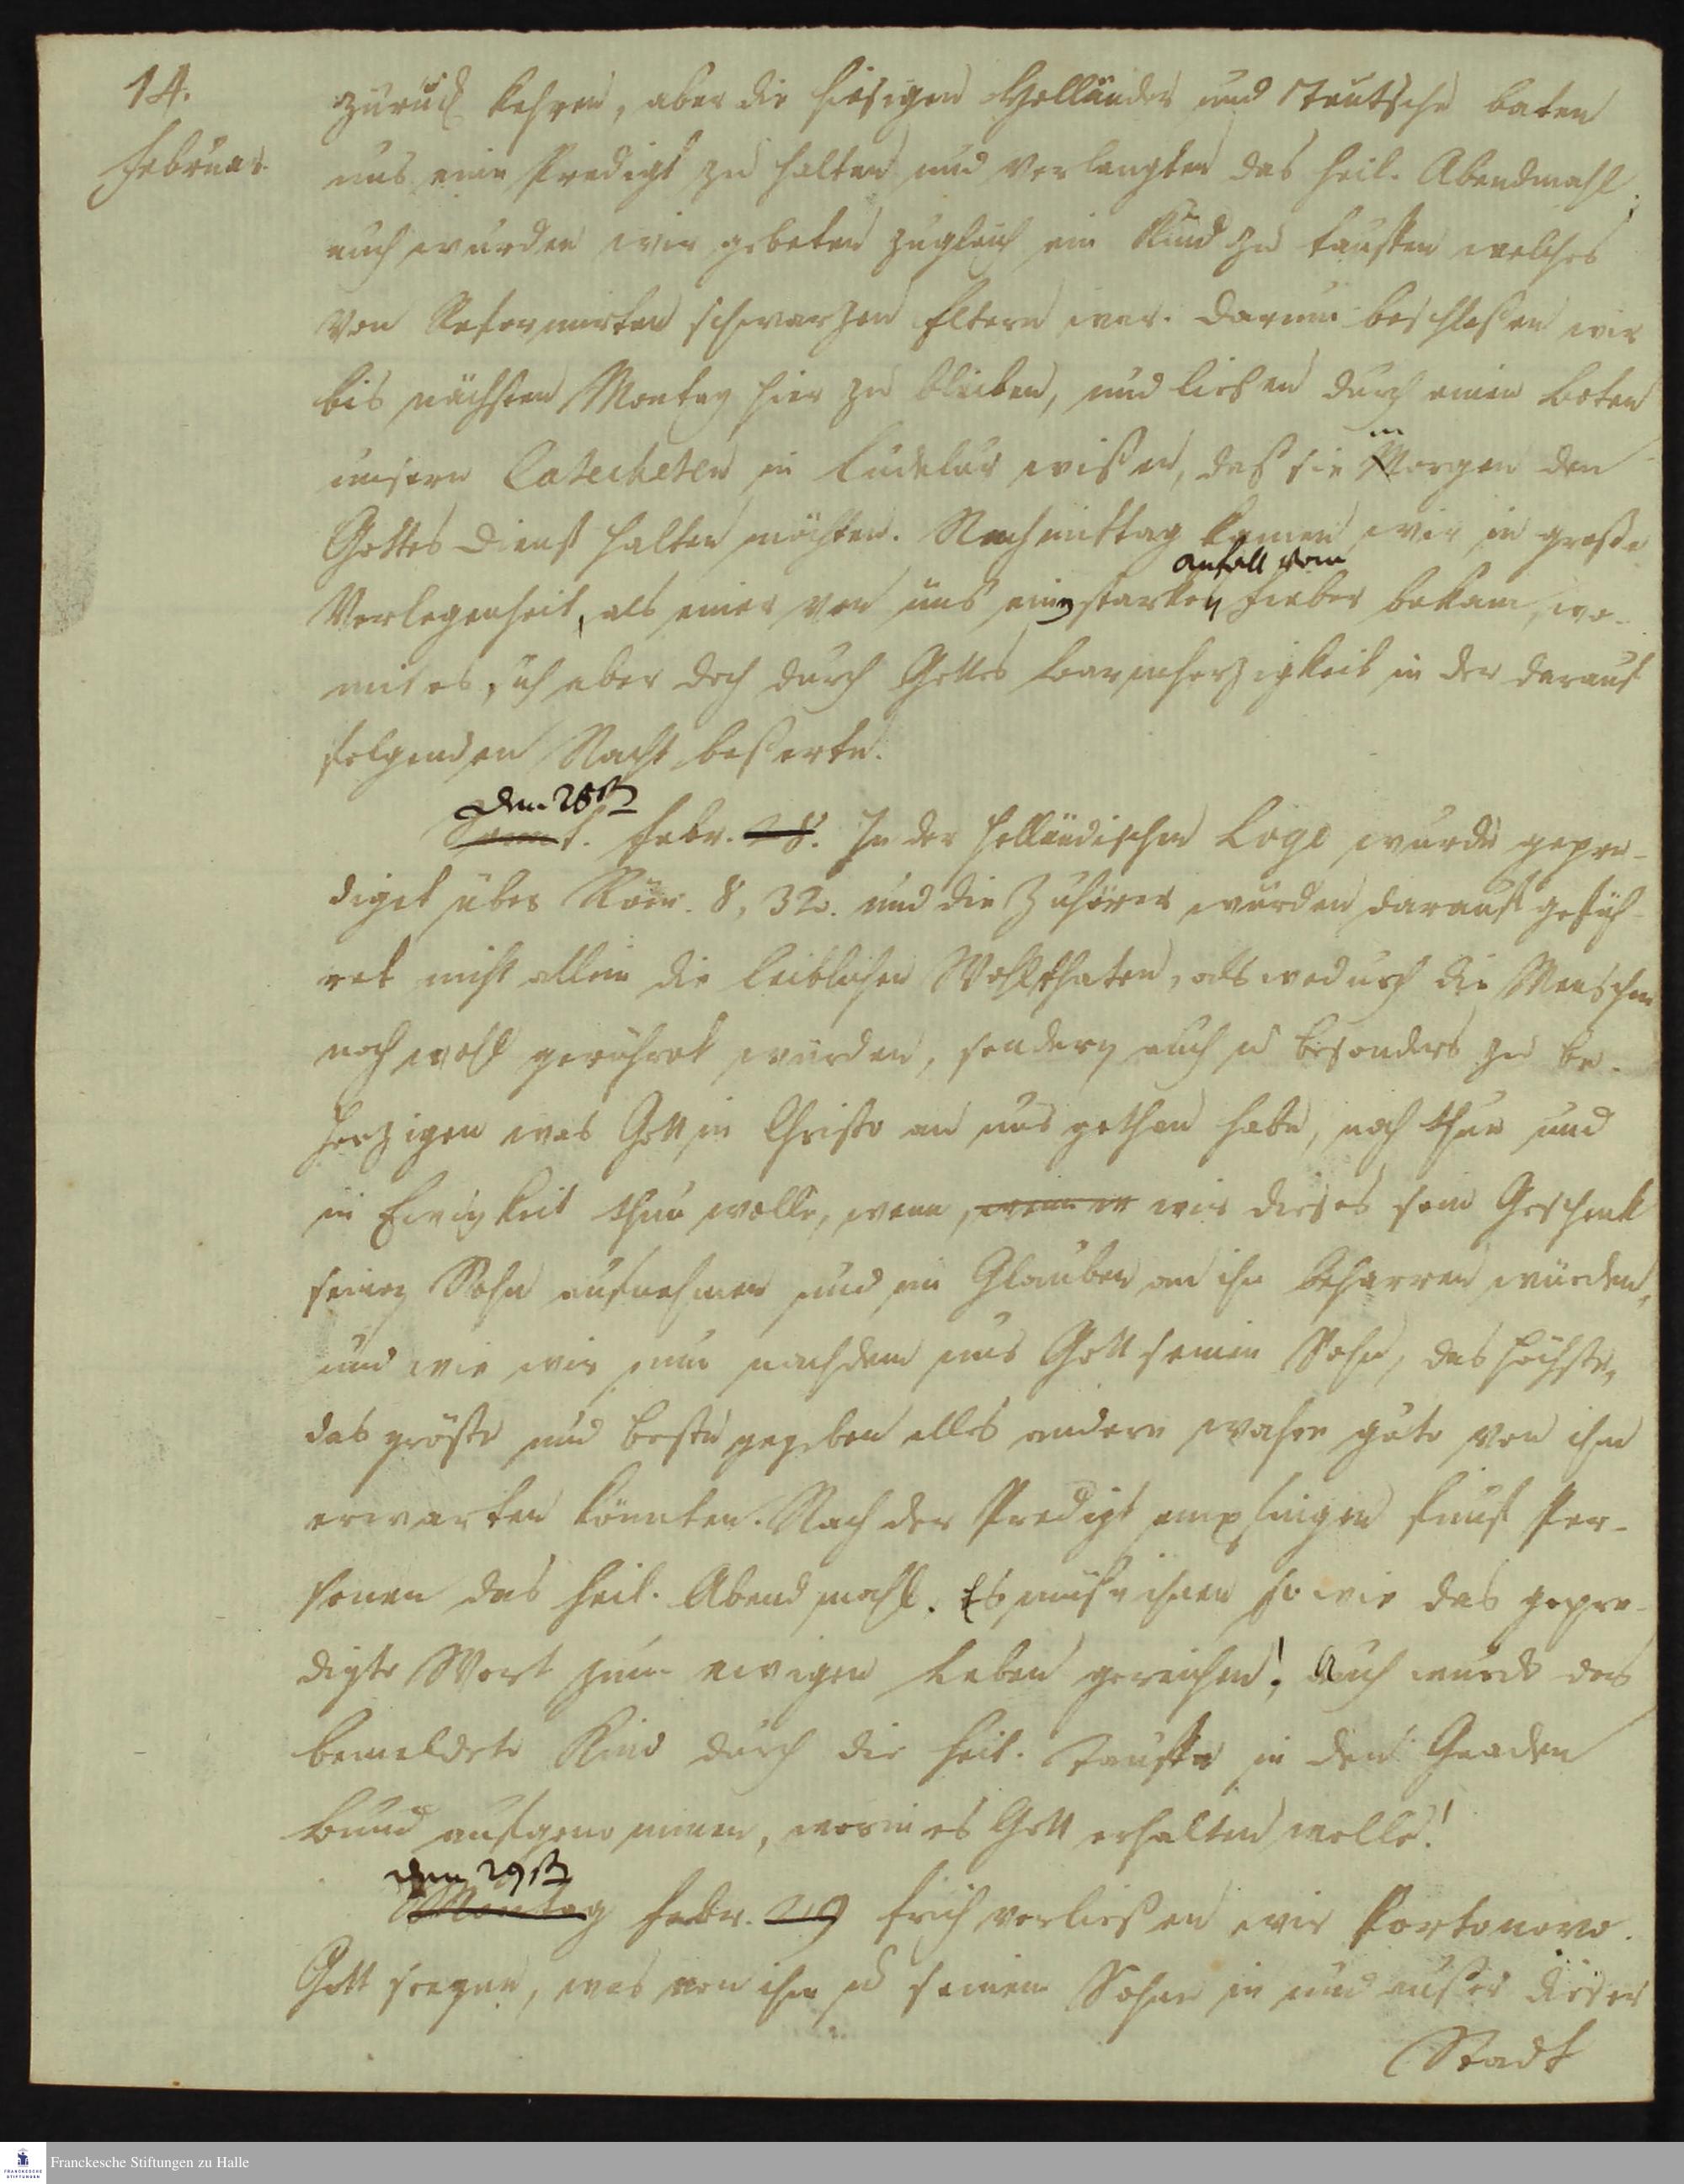 14.
Februar.
zurück kehren, aber die hiesigen Holländer und Teutsche baten
uns eine Predigt zu halten und verlangten das heil. Abendmahl;
auch wurden wir gebeten zugleich ein Kind zu tauffen welches
von Reformirten schwarzen Eltern war. Darum beschloßen wir
bis nächsten Montag hier zu bleiben, und ließen durch einen Boten
unsern Catecheten in Cudelur wißen, daß sie morgen den
Gottes Dienst halten möchten. Nachmittag kamen wir in große
Verlegenheit, als einer von uns einen starken Anfall vom Fieber bekam, wo-
mit es sich aber doch durch Gottes Barmherzigkeit in der darauf
folgenden Nacht beßerte.
den 28st
Sonnt. Febr. 28. In der holländischen Loge wurde gepre-
diget über Röm. 8, 32. und die Zuhörer wurden darauf gefüh-
ret nicht allein die leiblichen Wohlthaten, als wodurch die Menschen
noch wohl gerühret würden, sondern auch u besonders zu be-
herzigen was Gott in Christo an uns gethan habe, noch thue und
in Ewigkeit thun wolle, wenn, wenn er wir dieses sein Geschenk
seinen Sohn aufnehmen und im Glauben an ihn beharren würden,
und wie wir nun nachdem uns Gott seinen Sohn, das höchste,
das größte und beste gegeben alles andere wahre gute von ihm
erwarten könnten. Nach der Predigt empfingen fünf Per-
sonen das heil. Abendmahl. Es müße ihnen so wie das gepre-
digte Wort zum ewigen Leben gereichen! Auch wurde das
bemeldete Kind durch die heil. Tauffe in den Gnaden
Bund aufgenommen, worin es Gott erhalten wolle!
den 29st
Montag Febr. 29 früh verließen wir Portonovo.
Gott seegne, was von ihm u seinem Sohne in und außer dieser
Stadt
FRANCKESCHE STIFTUNGEN
Franckesche Stiftungen zu Halle